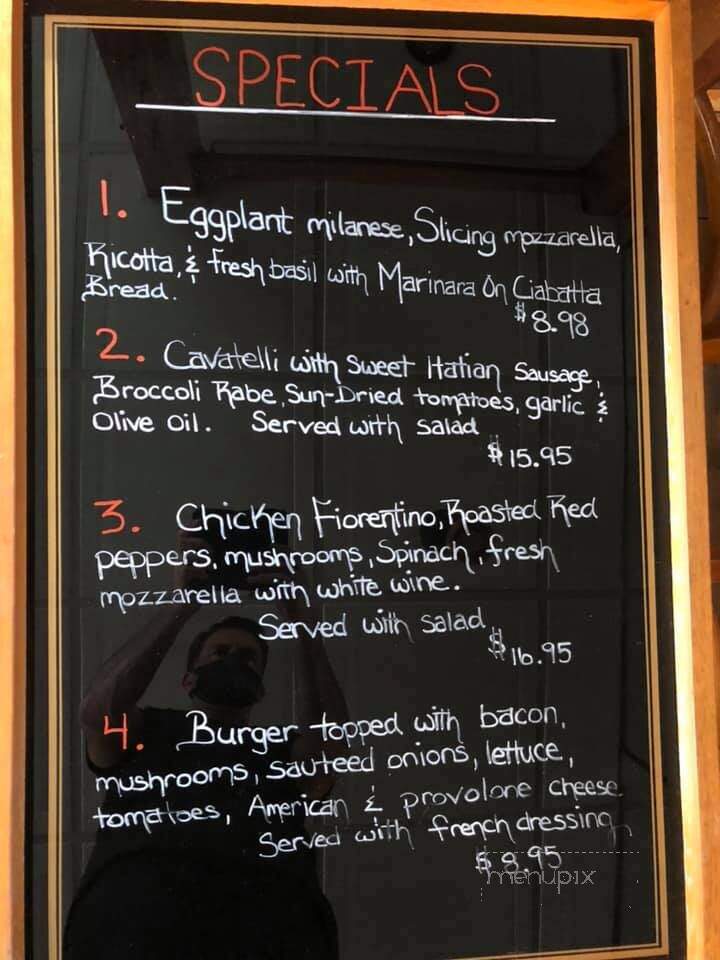 SPECIALS
1. Eggplant milanese, Slicing mozzarella,
Ricotta, & fresh basil with Marinara On Ciabatta
Bread.
$8.98
2. Cavatelli with Sweet Italian Sausage,
Broccoli Rabe, Sun-Dried tomatoes, garlic &
Olive oil. Served with salad
$15.95
3. Chicken Fiorentino, Roasted Red
peppers, mushrooms, Spinach, fresh
mozzarella with white wine.
Served with salad
$16.95
4. Burger topped with bacon,
mushrooms, sauteed onions, lettuce,
tomatoes, American & provolone cheese
Served with french dressing
$8.95
menupix